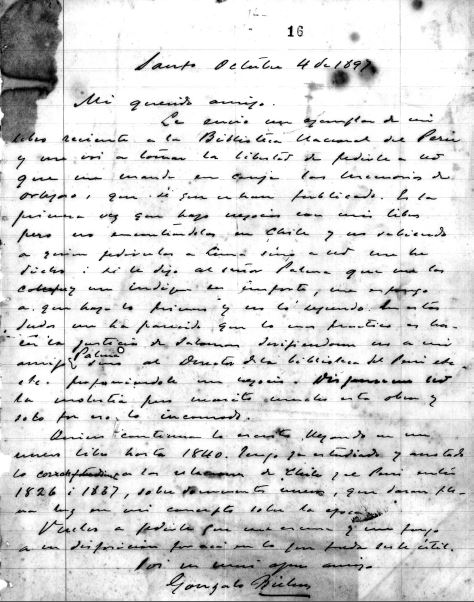 16
Santo Octubre 4 de 1897
Mi querido amigo.
Le envio un ejemplar de mi
libro reciente a la Biblioteca Nacional del Perú
y me voi a tomar la libertad de pedirle a Ud
que me mande en canje las Memorias de
Orbegoso, que se han publicado. Es la
primera vez que hago negocio con mis libros
pero no encontrándolos en Chile y no sabiendo
a quien pedírselos a Lima sino a Ud me he
dicho: si le digo al señor Palma que me los
compre y me indique su importe, me espongo
a que haga lo primero y no lo segundo. En esta
duda me ha parecido que lo mas practico es
la justicia de Salomon dirijiendome no a mi
amigo Palma sino al Director de la biblioteca del Perú etc
etc. proponiendole un negocio. Dispenseme Ud
la molestia pero necesito mucho esta obra y
solo por eso lo incomodo.
Quiero continuar lo escrito llegando en un
nuevo libro hasta 1840. Tengo ya estudiado y anotado
lo correspondiente a las relaciones de Chile y el Perú entre
1826 i 1837, sobre documentos nuevos, que daran
luz en mi concepto sobre la epoca.
Vuelvo a pedirle que me escuse y me pongo
a su disposicion por acá en lo que pueda serle útil.
Soi su mui afmo amigo
Gonzalo Bulnes